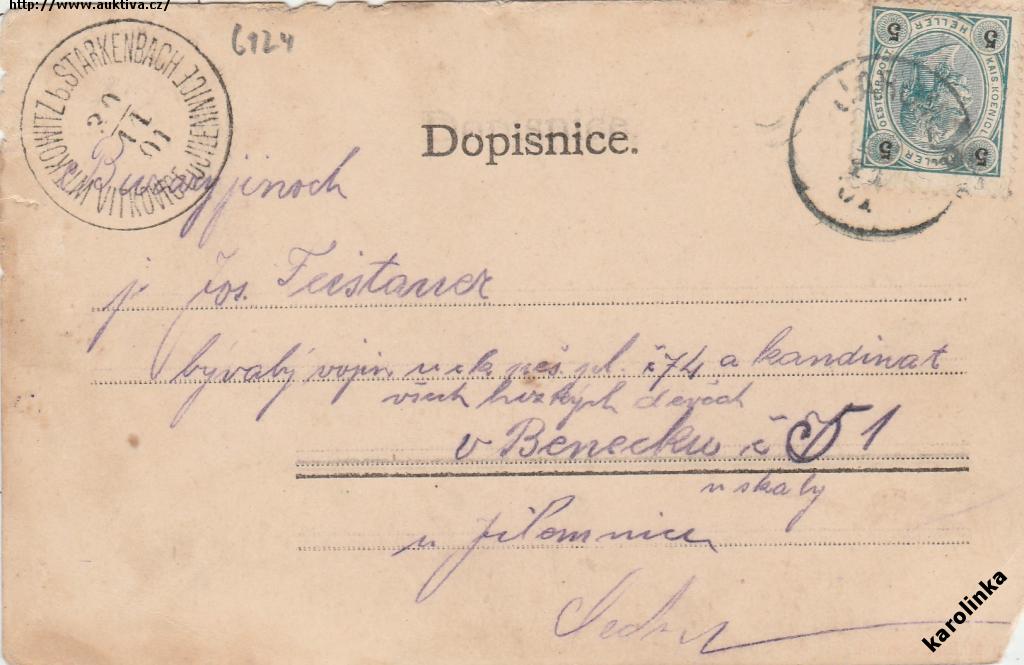 http://www.auktiva.cz/
6924
WITKOWITZ b. STARKENBACH
VITKOVICE u JILEMNICE
11
01
KAIS. KOENIGL. OESTERR. POST
5 HELLER 5
5 HELLER 5
Dopisnice.
p. Jos. Feistauer
bývalý vojín u c k pěš. pl. č 74 a kandinat
všech hezkých děvčat
v Benecku č 51
u skaly
u Jilemnice
karolinka